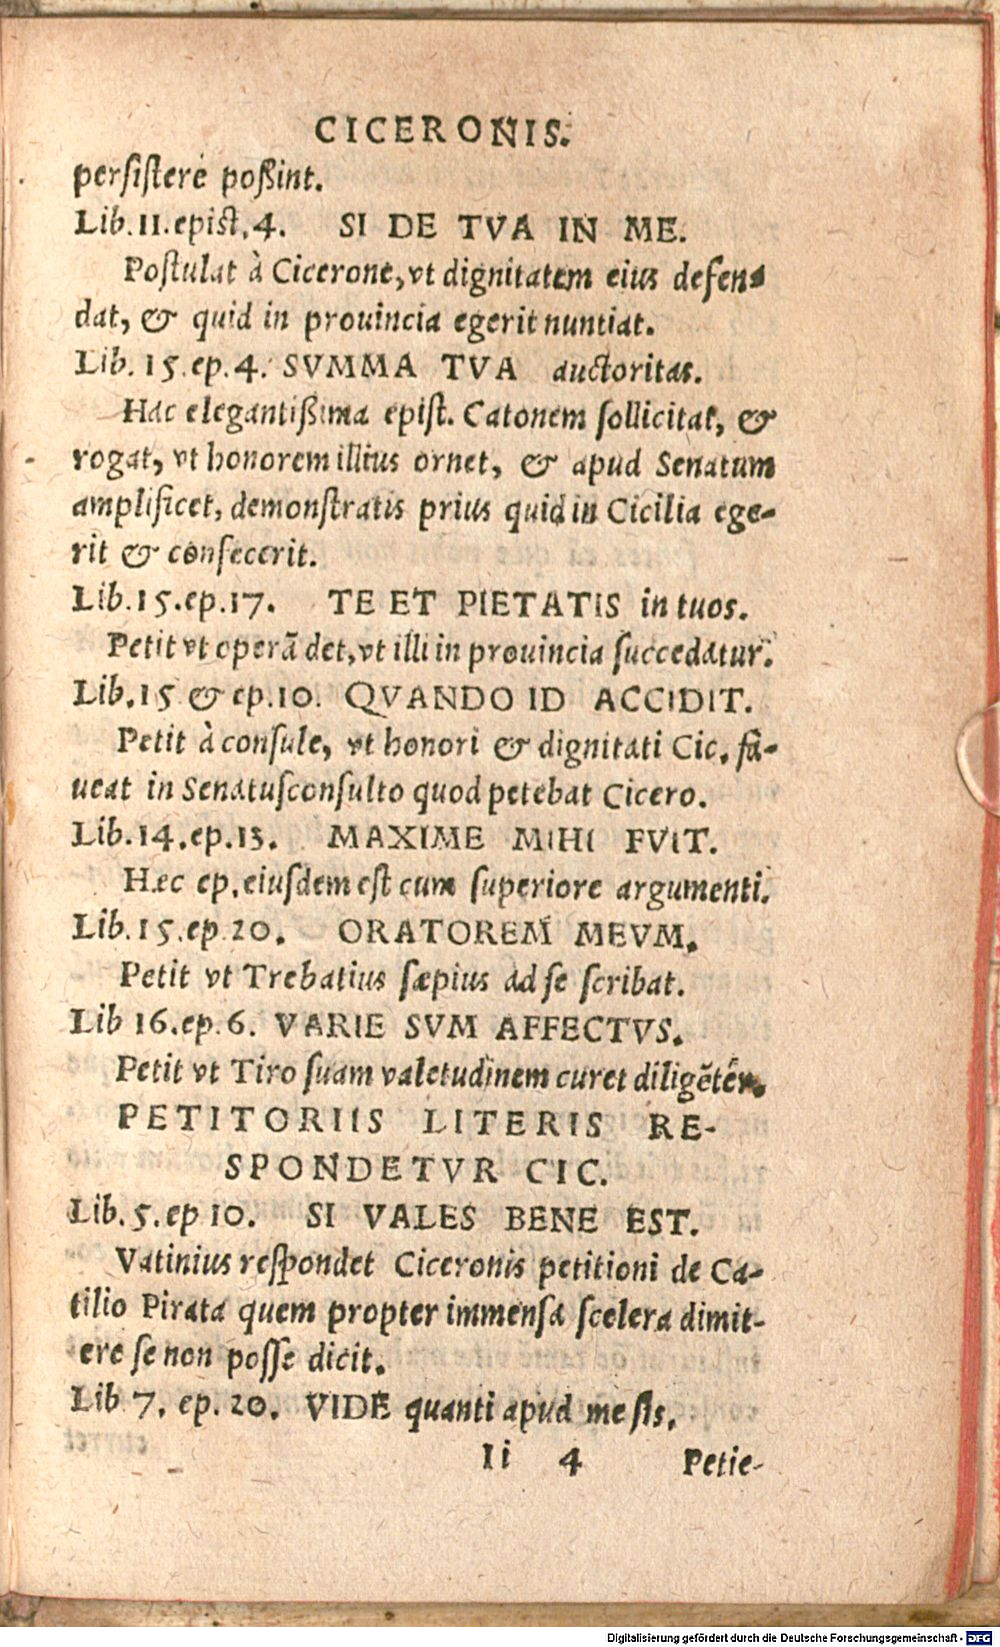 CICERONIS.
persistere poßint.
Lib. 11. epist. 4. SI DE TVA IN ME.
Postulat à Cicerone, vt dignitatem eius defen-
dat, & quid in prouincia egerit nuntiat.
Lib. 15. ep. 4. SVMMA TVA auctoritas.
Hac elegantißima epist. Catonem sollicitat, &
rogat, vt honorem illius ornet, & apud Senatum
amplificet, demonstratis prius quid in Cicilia ege-
rit & confecerit.
Lib. 15. ep. 17. TE ET PIETATIS in tuos.
Petit vt operā det, vt illi in prouincia succedatur.
Lib. 15 & ep. 10. QVANDO ID ACCIDIT.
Petit à consule, vt honori & dignitati Cic. fa-
ueat in Senatusconsulto quod petebat Cicero.
Lib. 14. ep. 13. MAXIME MIHI FVIT.
Hæc ep. eiusdem est cum superiore argumenti.
Lib. 15. ep. 20. ORATOREM MEVM.
Petit vt Trebatius sæpius ad se scribat.
Lib 16. ep. 6. VARIE SVM AFFECTVS.
Petit vt Tiro suam valetudinem curet diligētér.
PETITORIIS LITERIS RE-
SPONDETVR CIC.
Lib. 5. ep 10. SI VALES BENE EST.
Vatinius respondet Ciceronis petitioni de Ca-
tilio Pirata quem propter immensa scelera dimit-
ere se non posse dicit.
Lib 7. ep. 20. VIDE quanti apud me sis.
Ii 4 Petie-
Digitalisierung gefördert durch die Deutsche Forschungsgemeinschaft - DFG